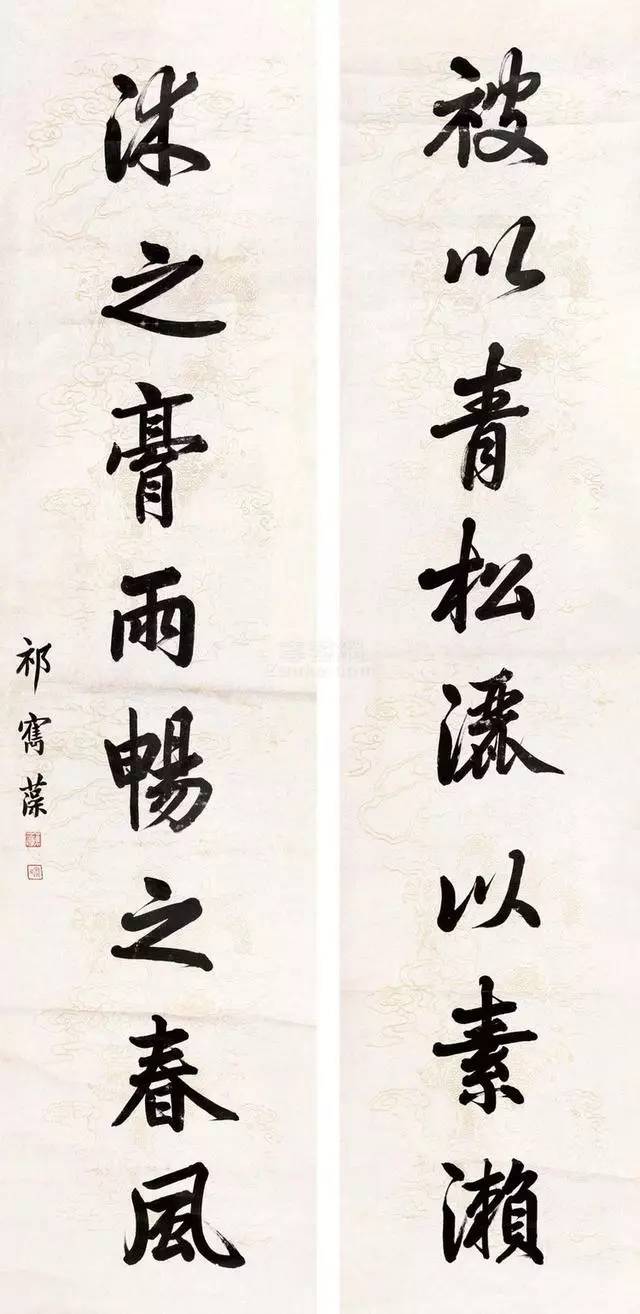 被以青松灑以素瀨
沐之膏雨暢之春風
祁寯藻